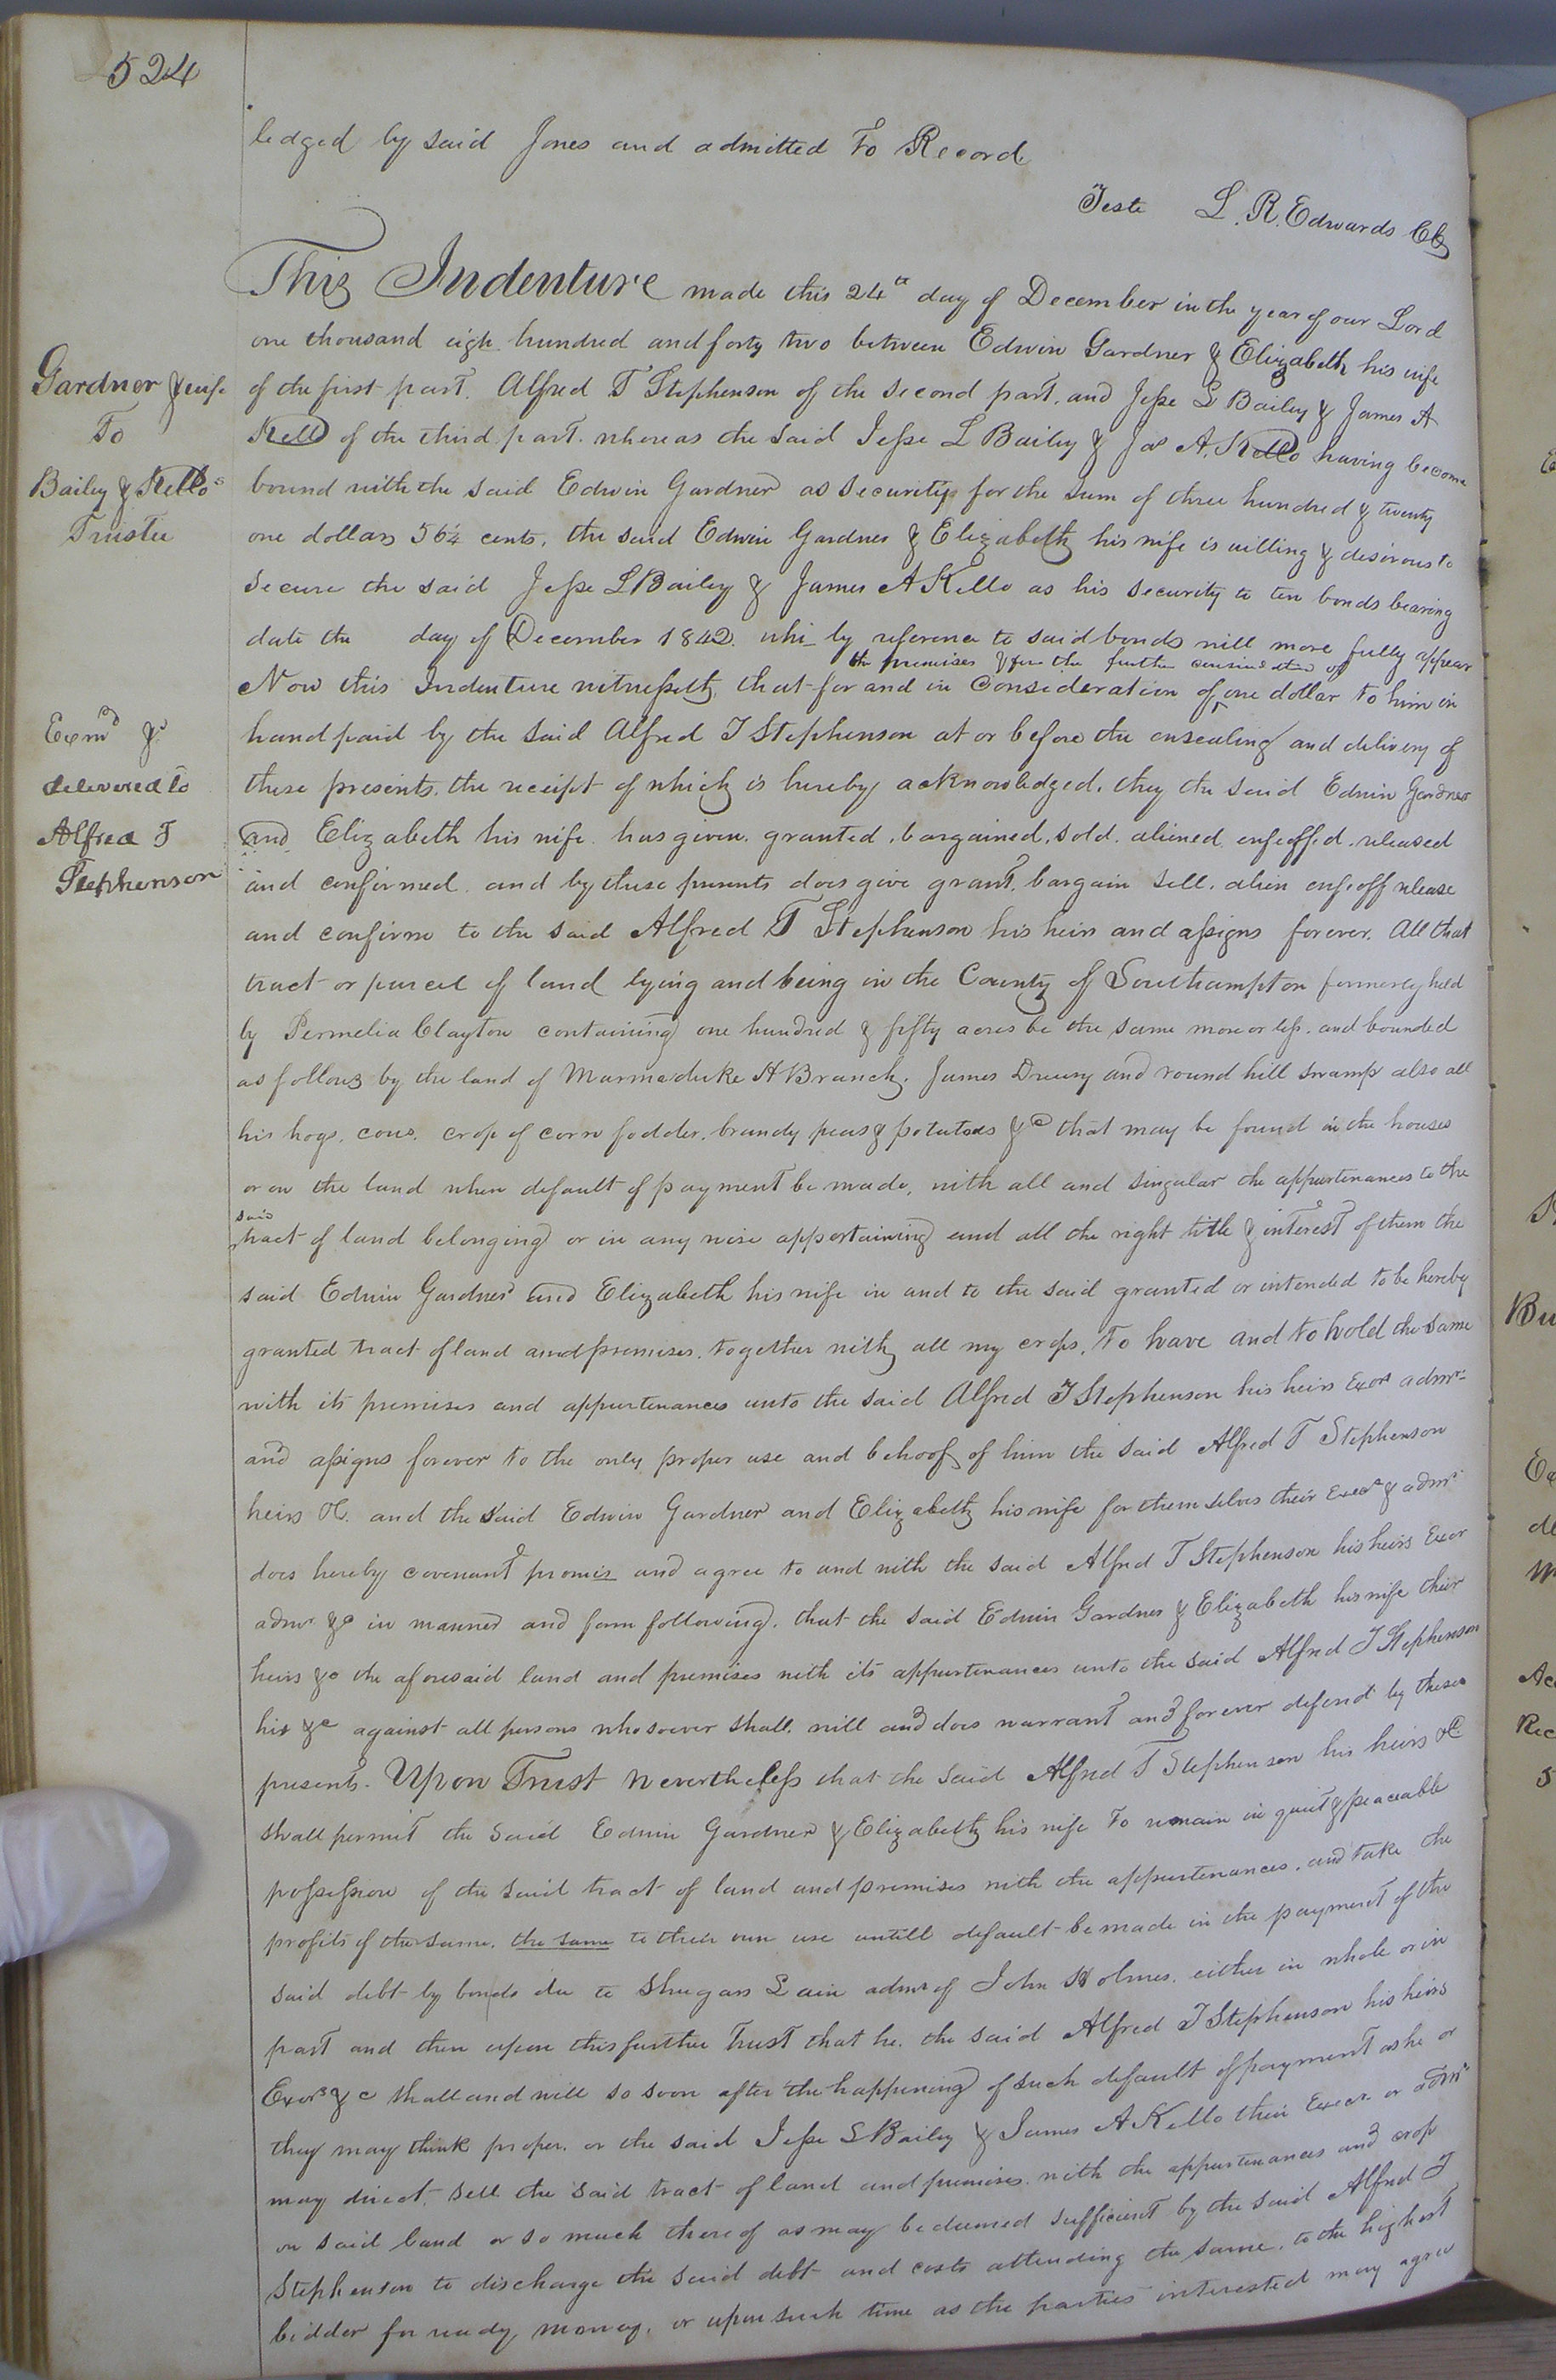 524
ledged by said Jones and admitted To Record
Teste L. R. Edwards Clk
This Indenture made this 24th day of December in the year of our Lord
one thousand eigh hundred and forty two between Edwin Gardner & Elizabeth his wife
Gardner & wife
To
Bailey & Kello's
Trustee
of the first part. Alfred T Stephenson of the second part, and Jesse L Bailey & James A
Kello of the third part. whereas the said Jesse L Bailey & Jas A. Kello having become
bound with the said Edwin Gardner as security for the sum of three hundred & twenty
one dollars 56¼ cents, the said Edwin Gardner & Elizabeth his wife is willing & desirous to
secure the said Jesse L Bailey & James A Kello as his security to ten bonds bearing
date the day of December 1842. whi by reference to said bonds will more fully appear
the premises & for the further consideration of
Now this Indenture witnesseth, that for and in Consideration of one dollar to him in
Exmd &
delivered to
Alfred T
Stephenson
hand paid by the said Alfred T Stephenson at or before the ensealing and delivery of
these presents, the receipt of which is hereby acknowledged. they the said Edwin Gardner
and Elizabeth his wife has given, granted, bargained, sold, aliened, enfeoffed, released
and confirmed and by these presents does give grant, bargain sell, alien enfeoff release
and confirm to the said Alfred T Stephenson his heirs and assigns forever. All that
tract or parcel of land lying and being in the County of Southampton formerly held
by Permelia Clayton containing one hundred & fifty acres be the same more or less, and bounded
as follows by the land of Marmaduke H Branch, James Drewry and round hill swamp also all
his hogs, cows, crop of corn fodder, brandy peas & potatoes &c that may be found in the houses
or on the land when default of payment be made, with all and singular the appurtenances to the
said
tract of land belonging or in any wise appertaining and all the right title & interest of them the
said Edwin Gardner and Elizabeth his wife in and to the said granted or intended to be hereby
granted tract of land and premises, together with all my crops, To have and to hold the same
with its premises and appurtenances unto the said Alfred T Stephenson his heirs Exors admrs
and assigns forever to the only proper use and behoof of him the said Alfred T Stephenson
heirs &c. and the said Edwin Gardner and Elizabeth his wife for themselves their Execrs & admrs
does hereby covenant promis and agree to and with the said Alfred T Stephenson his heirs Exor
admr &c in manner and form following, that the said Edwin Gardner & Elizabeth his wife their
heirs &c the aforesaid land and premises with its appurtenances unto the said Alfred T Stephenson
his &c against all persons whosoever shall will and does warrant and forever defend by these
presents. Upon Trust nevertheless that the said Alfred T Stephenson his heirs &c
shall permit the said Edwin Gardner & Elizabeth his wife to remain in quiet & peaceable
possession of the said tract of land and premises with the appurtenances, and take the
profits of the same, the same to their own use untill default be made in the payment of the
said debt by bonds due to Shugars Lain admr of John Holmes, either in whole or in
part and then upon this further Trust that he, the said Alfred T Stephenson his heirs
Exors &c shall and will so soon after the happening of such default of payment as he or
they may think proper, or the said Jesse L Bailey & James A Kello their Execr or admr
may direct, sell the said tract of land and premises with the appurtenances and crop
on said land or so much thereof as may be deemed sufficient by the said Alfred T
Stephenson to discharge the said debt and costs attending the same, to the highest
bidder for ready money, or upon such time as the parties interested may agree